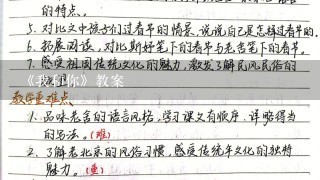 的特点。
5. 对比文中孩子们过春节的情景,说说自己是怎样过春节的。
6. 拓展阅读,对比斯好笔下的春节与老舍笔下的春节。
7. 感受祖国传统文化的魅力,激发了解民风民俗的
《我和你》教案
教学重难点
1. 品味老舍的语言风格,学习课文有顺序、详略得当
的写法。(难)
2. 了解老北京的风俗习惯,感受传统年文化的独特
魅力。(重)